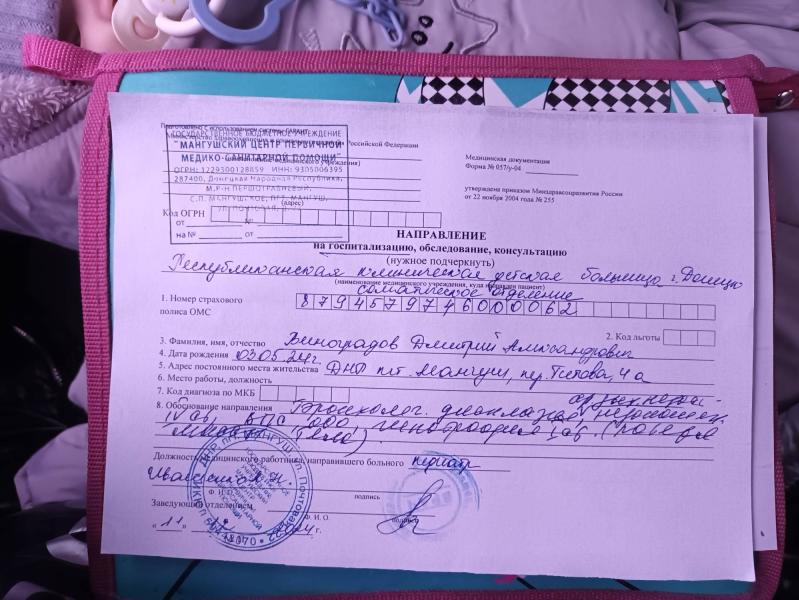 Министерство здравоохранения и социального развития Российской Федерации
ГОСУДАРСТВЕННОЕ БЮДЖЕТНОЕ УЧРЕЖДЕНИЕ
"МАНГУШСКИЙ ЦЕНТР ПЕРВИЧНОЙ
МЕДИКО-САНИТАРНОЙ ПОМОЩИ"
ОГРН: 1229300128859 ИНН: 9305006395
287400, Донецкая Народная Республика,
М.Р-Н ПЕРШОТРАВНЕВЫЙ,
С.П. МАНГУШСКОЕ, ПГТ. МАНГУШ,
(адрес)
Код ОГРН
от №
на № от
Медицинская документация
Форма № 057/у-04
утверждена приказом Минздравсоцразвития России
от 22 ноября 2004 года № 255
НАПРАВЛЕНИЕ
на госпитализацию, обследование, консультацию
(нужное подчеркнуть)
Республиканская клиническая детская больница г. Донецк
(наименование медицинского учреждения, куда направлен пациент)
соматическое отделение
1. Номер страхового
полиса ОМС
8794579746000062
2. Код льготы
3. Фамилия, имя, отчество Виноградов Дмитрий Александрович
4. Дата рождения 03.05.24г.
5. Адрес постоянного места жительства ДНР пгт. Мангуш, пер. Титова, 4а
6. Место работы, должность
7. Код диагноза по МКБ
8. Обоснование направления
Должность медицинского работника, направившего больного педиатр
Ф. И. О.
подпись
Заведующий отделением
Ф. И. О.
подпись
"11" 2024 г.